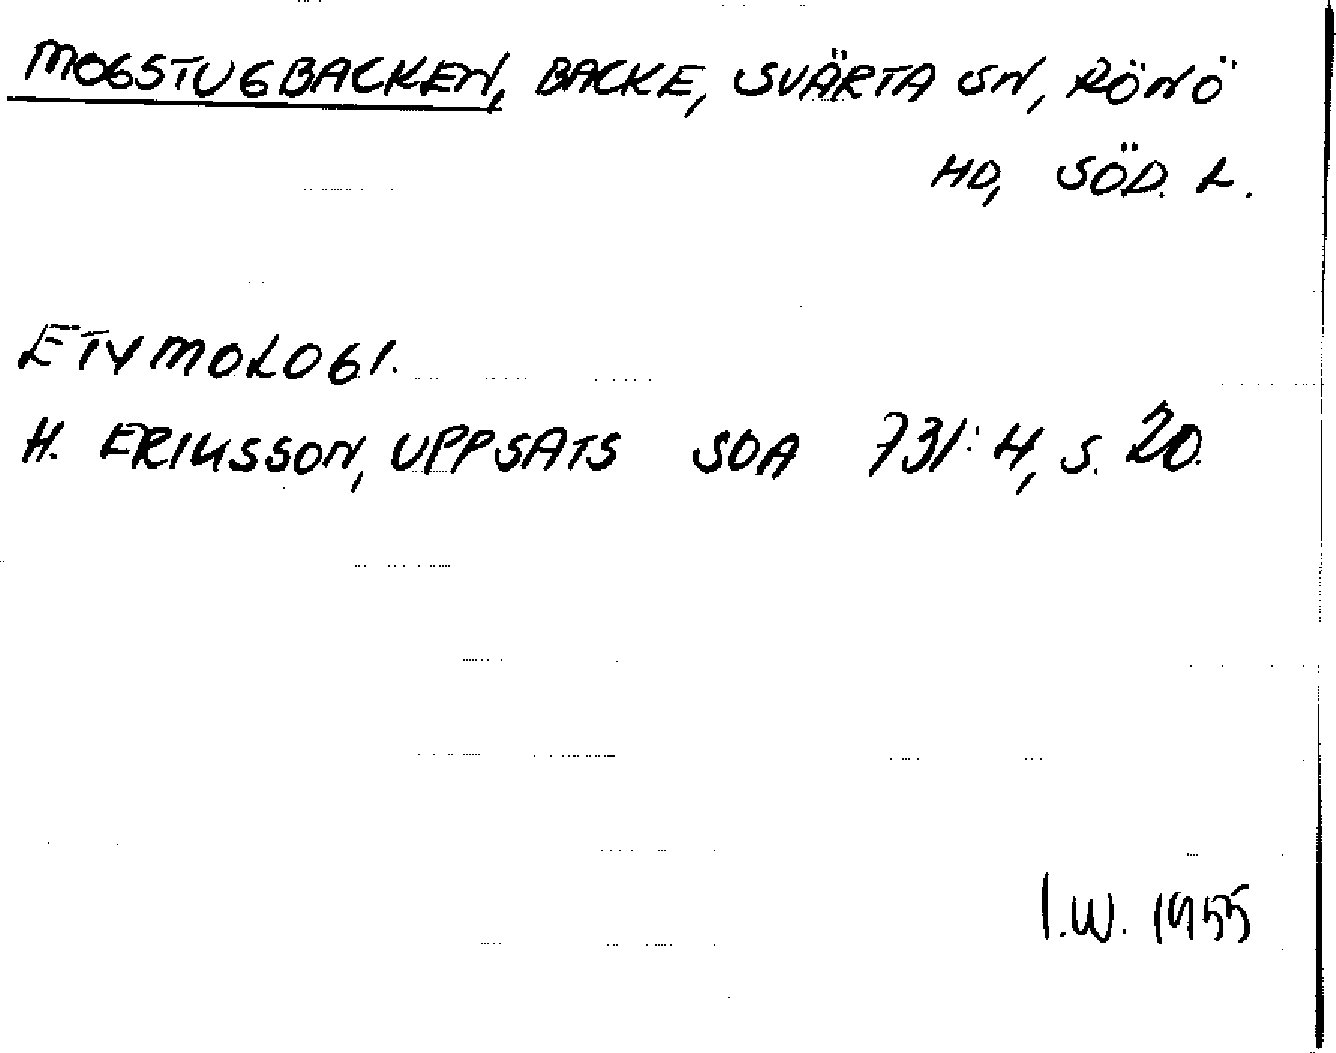 MOGSTUGBACKEN, BACKE, SVÄRTA SN, RÖNÖ
HD, SÖD. L.
ETYMOLOGI.
H. ERIKSSON, UPPSATS SOA 731:4, S. 20.
I.W. 1955